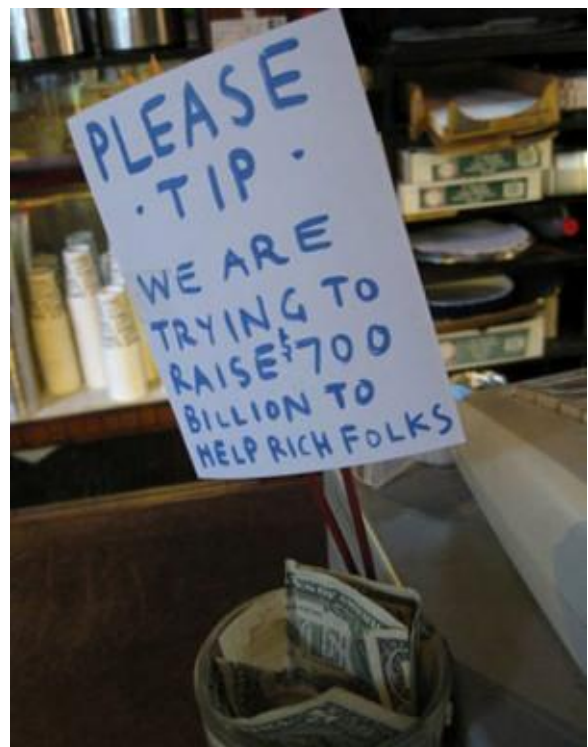 PLEASE
· TIP ·
WE ARE
TRYING TO
RAISE $700
BILLION TO
HELP RICH FOLKS